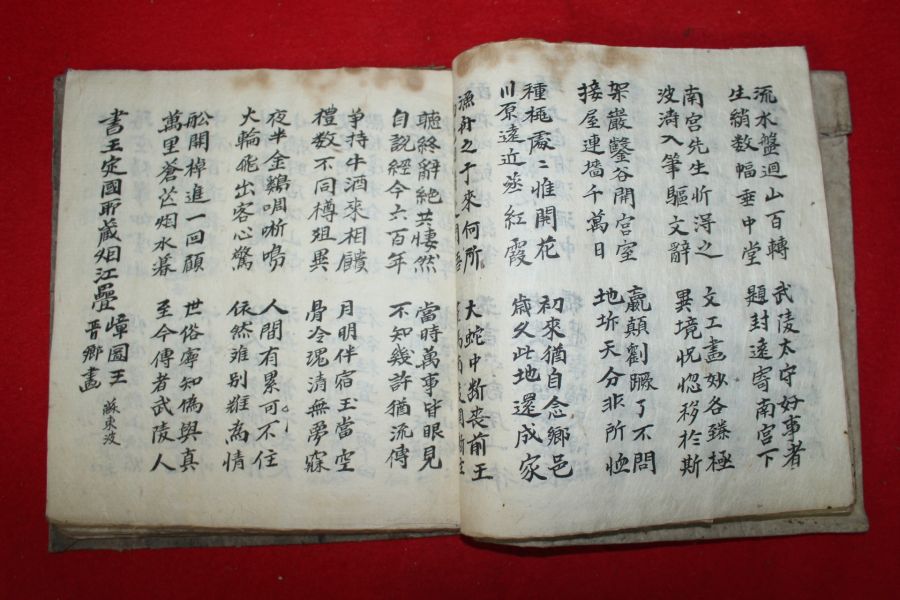 流水盤迴山百轉
生綃数幅垂中堂
武陵太守好事者
題封遠寄南宮下
南宮先生忻得之
波濤入筆驅文辭
文工畫妙各臻極
異境恍惚移於斯
架巖鑿谷開宮室
接屋連墻千萬日
嬴顛劉蹶了不問
地坼天分非所恤
種桃處〻惟開花
川原遠近蒸紅霞
初來猶自念鄉邑
歲久此地還成家
漁舟之子來何所
大蛇中断喪前王
聽終辭絕共悽然
自說經今六百年
當時萬事皆眼見
不知幾許猶流傳
爭持牛酒來相饋
禮數不同樽俎異
月明伴宿玉當空
骨冷魂清無夢寐
夜半金鷄啁哳鳴
火輪飛出客心驚
人間有累可不住
依然離別難為情
舩開棹進一回顧
萬里蒼茫烟水暮
世俗寧知偽與真
至今傳者武陵人
書王定國所藏烟江疊嶂圖王晉鄉畫 蘇東波